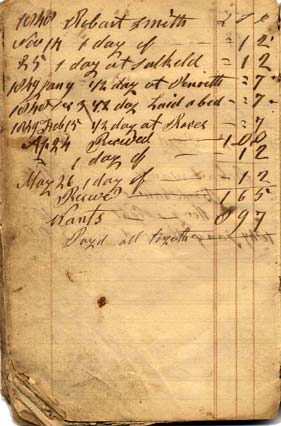 1848 Robert Smith
Nov 14 1 day of — = 1 2
25 1 day at Salkeld = 1 2
1849 Jany — 1/2 day at Penrith = 7
1/2 day Laid abed — = 7
1849 Feb 15 1/2 day at Roses — = 7
Ap 24 Received — 1 0 0
1 day of — 1 2
May 26 1 day of — 1 2
Receive 1 6 5
Wants 0 9 7
Payd all